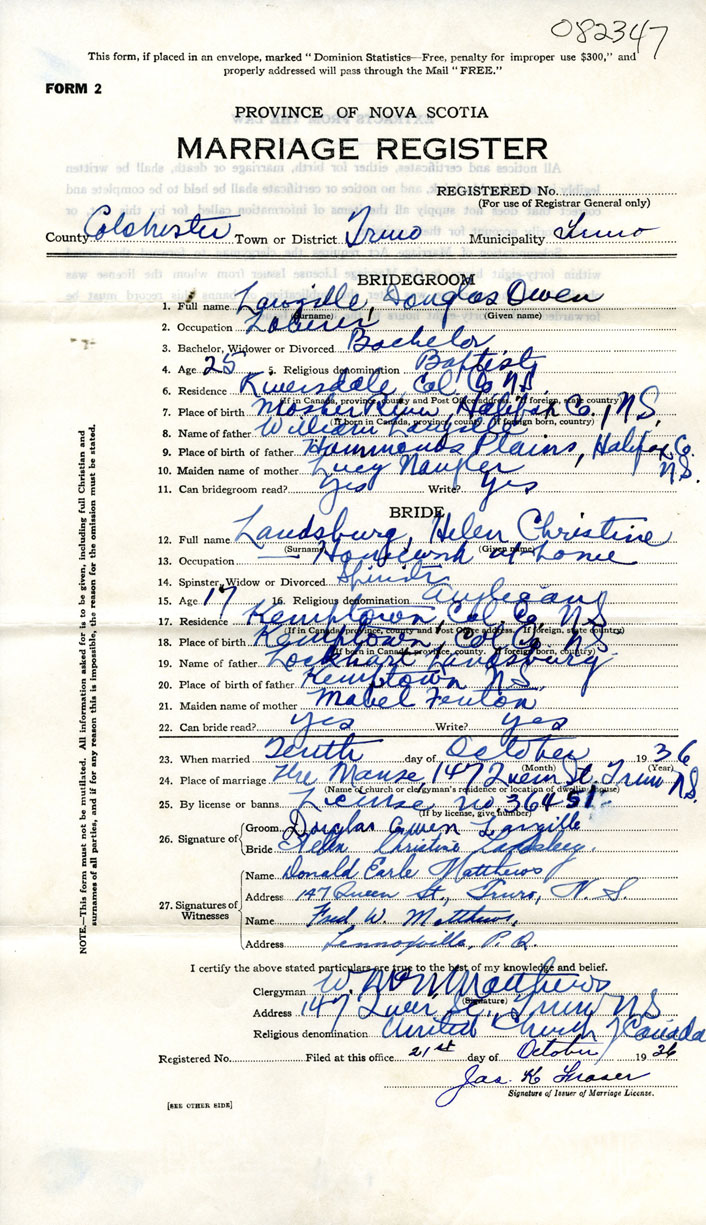 082347
This form, if placed in an envelope, marked "Dominion Statistics—Free, penalty for improper use $300," and
properly addressed will pass through the Mail "FREE."
FORM 2
PROVINCE OF NOVA SCOTIA
MARRIAGE REGISTER
REGISTERED No.
(For use of Registrar General only)
County Colchester Town or District Truro Municipality Truro
BRIDEGROOM
1. Full name Langille, Douglas Owen
(Surname) (Given name)
2. Occupation Laborer
3. Bachelor, Widower or Divorced Bachelor
4. Age 25 5. Religious denomination Baptist
6. Residence Riversdale Col. Co. N.S.
(If in Canada, province, county and Post Office address. If foreign, state country)
7. Place of birth Mosher River, Halifax Co., N.S.
(If born in Canada, province, county. If foreign born, country)
8. Name of father William Langille
9. Place of birth of father Hammonds Plains, Halifax Co. N.S.
10. Maiden name of mother Lucy
11. Can bridegroom read? Yes Write? Yes
BRIDE
12. Full name Landsburg, Helen Christine
(Surname) (Given name)
13. Occupation — Housework at home
14. Spinster, Widow or Divorced Spinster
15. Age 17 16. Religious denomination Anglican
17. Residence Kemptown, Col. Co., N.S
(If in Canada, province, county and Post Office address. If foreign, state country)
18. Place of birth Kemptown, Col. Co. N.S
(If born in Canada, province, county. If foreign born, country)
19. Name of father Lockhart Landsburg
20. Place of birth of father Kemptown N.S.
21. Maiden name of mother Mabel Fenton
22. Can bride read? Yes Write? Yes
23. When married Tenth day of October 1936
(Month) (Year)
24. Place of marriage The Manse, 147 Queen St. Truro N.S.
(Name of church or clergyman's residence or location of dwelling house)
25. By license or banns License no. 36451
(If by license, give number)
26. Signature of
Groom Douglas Owen Langille
Bride Helen Christine Landsburg.
27. Signatures of Witnesses
Name Donald Earle Matthews
Address 147 Queen St., Truro, N. S.
Name Fred W. Matthews,
Address Lennoxville, P.Q.
I certify the above stated particulars are true to the best of my knowledge and belief.
Clergyman Matthews
(Signature)
Address 147 Queen St., Truro N.S
Religious denomination United Church of Canada
Registered No. Filed at this office 21st day of October 1936
Jas. K Fraser
Signature of Issuer of Marriage License.
[SEE OTHER SIDE]
NOTE.—This form must not be mutilated. All information asked for is to be given, including full Christian and
surnames of all parties, and if for any reason this is impossible, the reason for the omission must be stated.